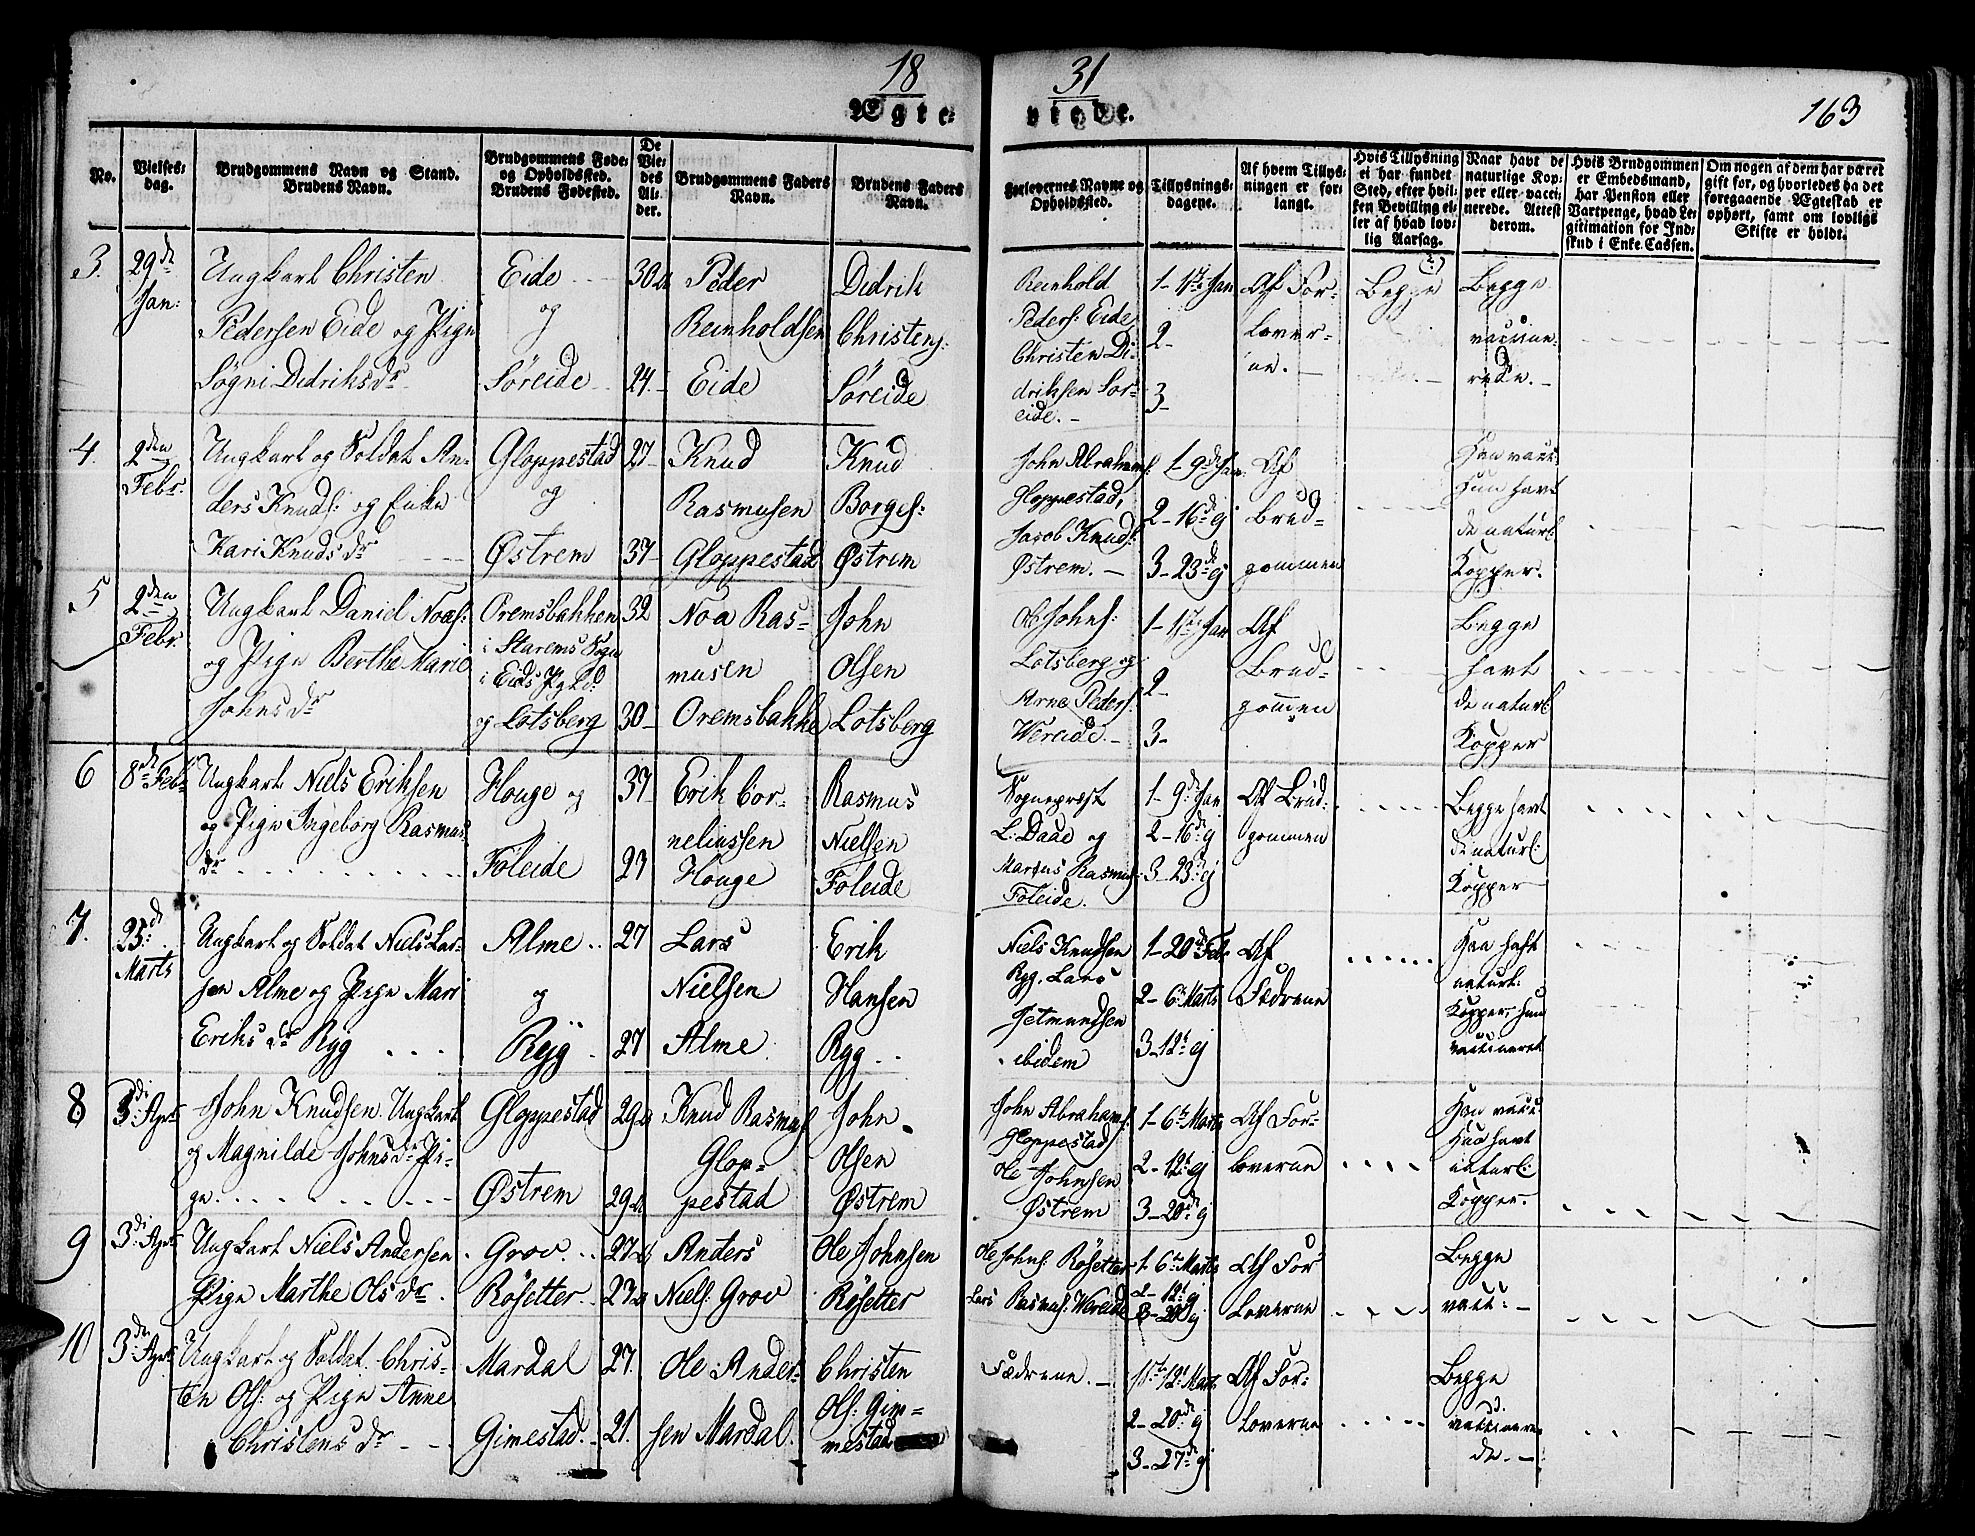 18 31
Ægte viede.
163
No.
Vielses-dag.
Brudgommens Navn og Stand.
Brudens Navn.
Brudgommens Føde- og Opholdssted.
Brudens Fødested.
De Viedes Alder.
Brudgommens Faders Navn.
Brudens Faders Navn.
Forlovernes Navne og Opholdssted.
Tillysnings-dagene.
Af hvem Tillysningen er forlangt.
Hvis Tillysning ei har fundet Sted, efter hvilken Bevilling eller af hvad lovlig Aarsag.
Naar havt de naturlige Kopper eller vaccinerede. Attest derom.
Hvis Brudgommen er Embedsmand, har Pension eller Vartpenge, hvad Legitimation for Indskud i Enke-Cassen.
Om nogen af dem har været gift før, og hvorledes da det foregaaende Ægteskab er ophørt, samt om lovligt Skifte er holdt.
3. 29de Jan:
Ungkarl Christen
Pedersen Eide og Pige
Søgni Didriksdr
Eide
og
Søreide
30
24
Peder
Reinholdsen
Eide
Didrik
Christens:
Søreide
Reinhold
Peders: Eide
Christen Di-
driksen Sør-
eide.
1- Jan
2-
3-
Af For-
lover-
ne.
Begge
Begge
vaccine-
rede.
4. 2den Febr.
Ungkarl og Soldat An-
ders Knuds: og Enke
Kari Knudsdr
Gloppestad
og
Østrem
27
37
Knud
Rasmusen
Gloppestad
Knud
Borges:
Østrem
John Abrahams:
Gloppestad,
Jacob Knuds:
Østrem.
1- 9de Jan:
2- 16de ej
3- 23de ej
Af
Brud-
gommen
Han vacc:
Hun havt
de naturl:
Kopper.
5 2den Febr.
Ungkarl Daniel Noas:
og Pige Berthe Marie
Johnsdr
Oremsbakken
i Starems Sogn
i Eids Pgld:
og Lotsberg
32
30
Noa Ras-
musen
Oremsbakke
John
Olsen
Lotsberg
Ole Johns:
Lotsberg og
Arne Peders:
Wereide.
1- Jan
2-
3-
Af
Brud-
gommen
Begge
havt
de naturl:
Kopper
6 8de Febr
Ungkarl Niels Eriksen
og Pige Ingeborg Rasmus
dr
Houge og
Foleide
37
23
Erik Cor-
neliussen
Houge
Rasmus
Nielsen
Foleide
Sognepræst
L: Daae og
Marius Rasmus:
Foleide.
1- 9de Jan
2- 16de ej
3- 23de ej
Af Brud-
gommen
Begge havt
de naturl:
Kopper
7. 25de Marts
Ungkarl og Soldat Niels Lar-
sen Alme og Pige Mari
Eriksdr Ryg
Alme
og
Ryg
27
27
Lars
Nielsen
Alme
Erik
Hansen
Ryg
Niels Knudsen
Ryg, Lars
Jetmundsen
ibidem
1- 20de Febr
2- 6te Marts
3- 12te ej
Af
Fædrene
Han haft
naturl:
Kopper, hun
vaccineret
8 3di April
John Knudsen Ungkarl
og Magnilde Johnsdr Pi-
ge
Gloppestad
Østrem
29
29
Knud Rasmus:
Glop-
pestad
John
Olsen
Østrem
John Abrahams:
Gloppestad
Ole Johnsen
Østrem
1- 6te Marts
2- 12te ej
3- 20de ej
Af For-
loverne
Han vacc:
Hun havt
naturl:
Kopper
9 3di April
Ungkarl Niels Andersen
Pige Marthe Olsdr
Grov
Røsetter
27
23
Anders
Niels: Grov
Ole Johnsen
Røsetter
Ole Johns: Røsetter
Lars Rasmus: Wereide
1- 6te Marts
2- 12te ej
3- 20de ej
Af For
loverne
Begge
vacc:
10 3di April
Ungkarl og Soldat Chris-
ten Ols: og Pige Anne
Christensdr
Mardal
Gimestad
27
21.
Ole Ander-
sen Mardal
Christen
Ols: Gim-
mestad
Fædrene.
1- 12te Marts
2- 20de ej
3- 27de ej
Af For-
loverne
Begge
vaccinere-
de.